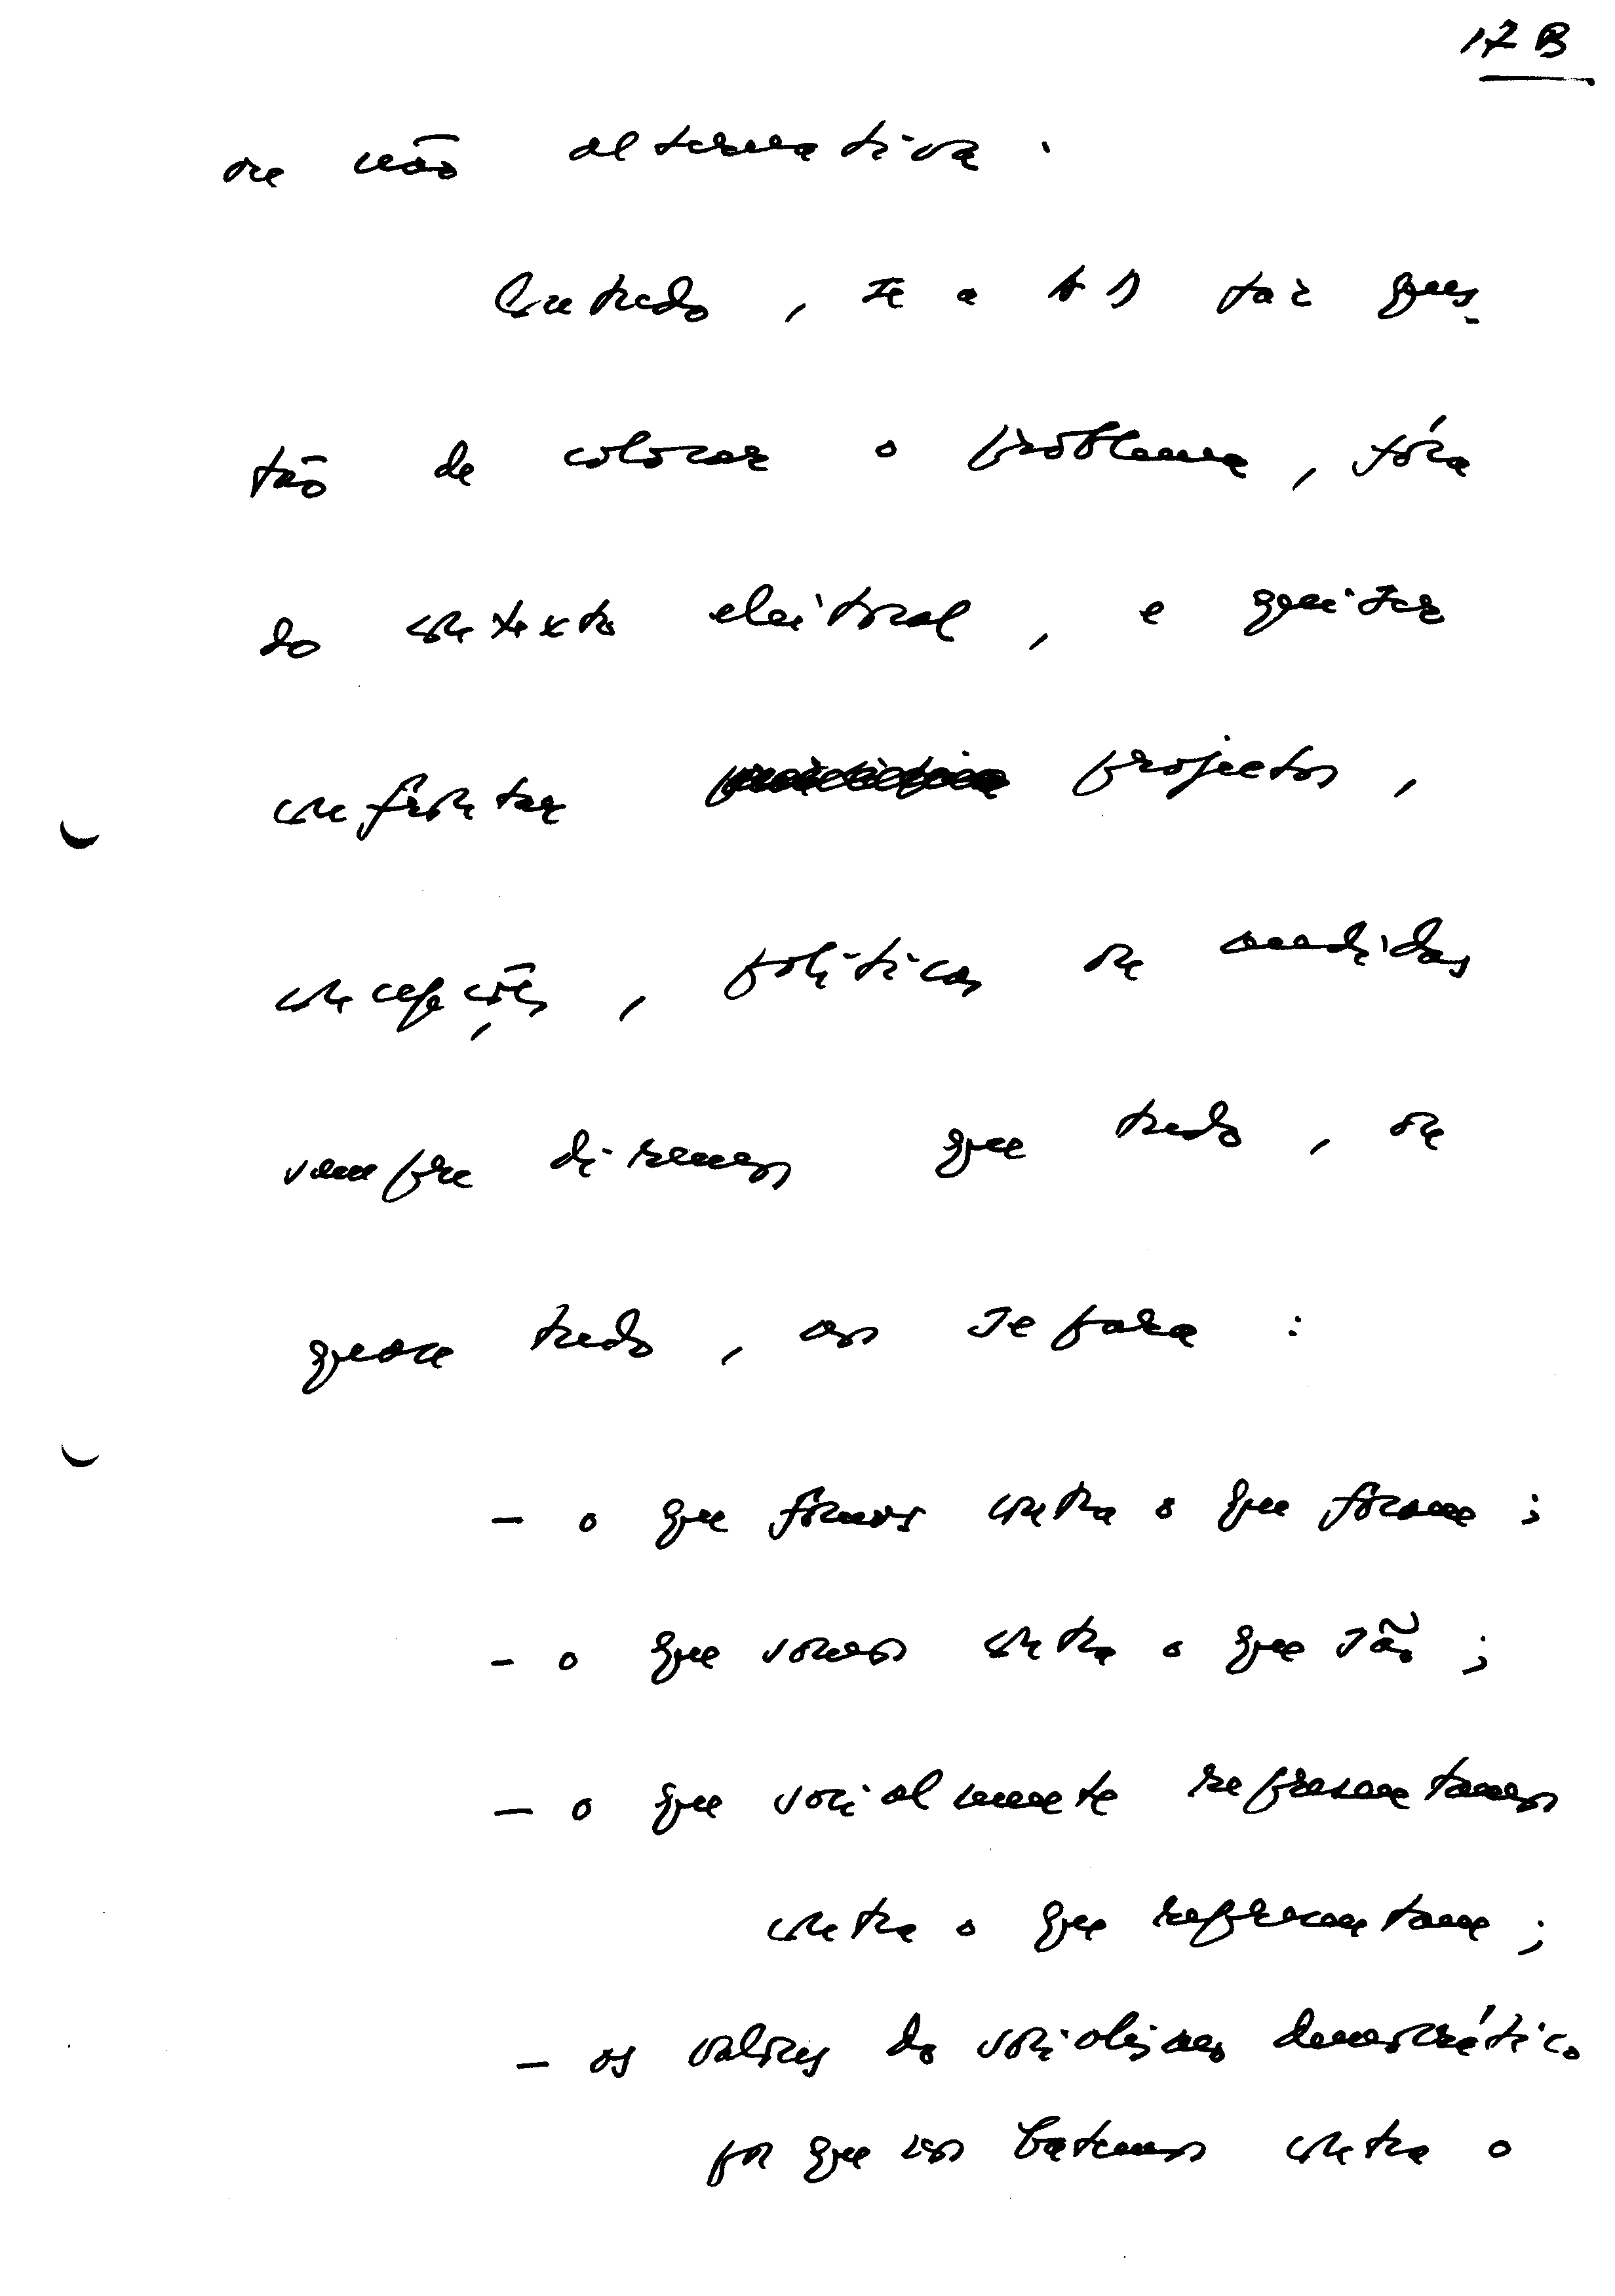 17 B
ou não alternativa.
Contudo, se a AD faz ques-
tão de colocar o problema, fóra
do contexto eleitoral, e quiser
confrontar projectos,
concepções, políticas ou medidas
sempre diremos que tudo, ou
quase tudo, os separa:
- o que fomos contra o que foram;
- o que somos contra o que são;
- o que socialmente representamos
contra o que representam;
- os valores do socialismo democrático
por que nos batemos contra o